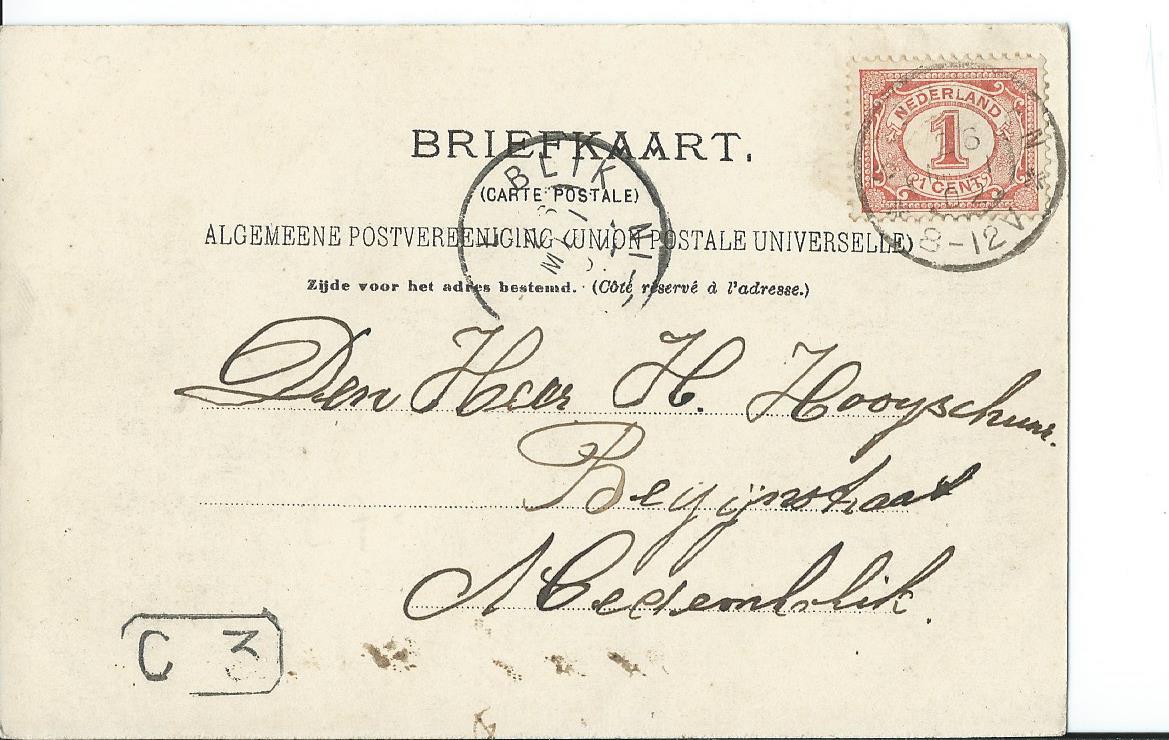 BRIEFKAART.
(CARTE POSTALE)
ALGEMEENE POSTVEREENIGING (UNION POSTALE UNIVERSELLE)
Zijde voor het adres bestemd. (Côté réservé à l'adresse.)
NEDERLAND
1
1 CENT
8-12V
BLIK
Den Heer H. Hooyschuur.
Begijnstraat
Medemblik.
C 3